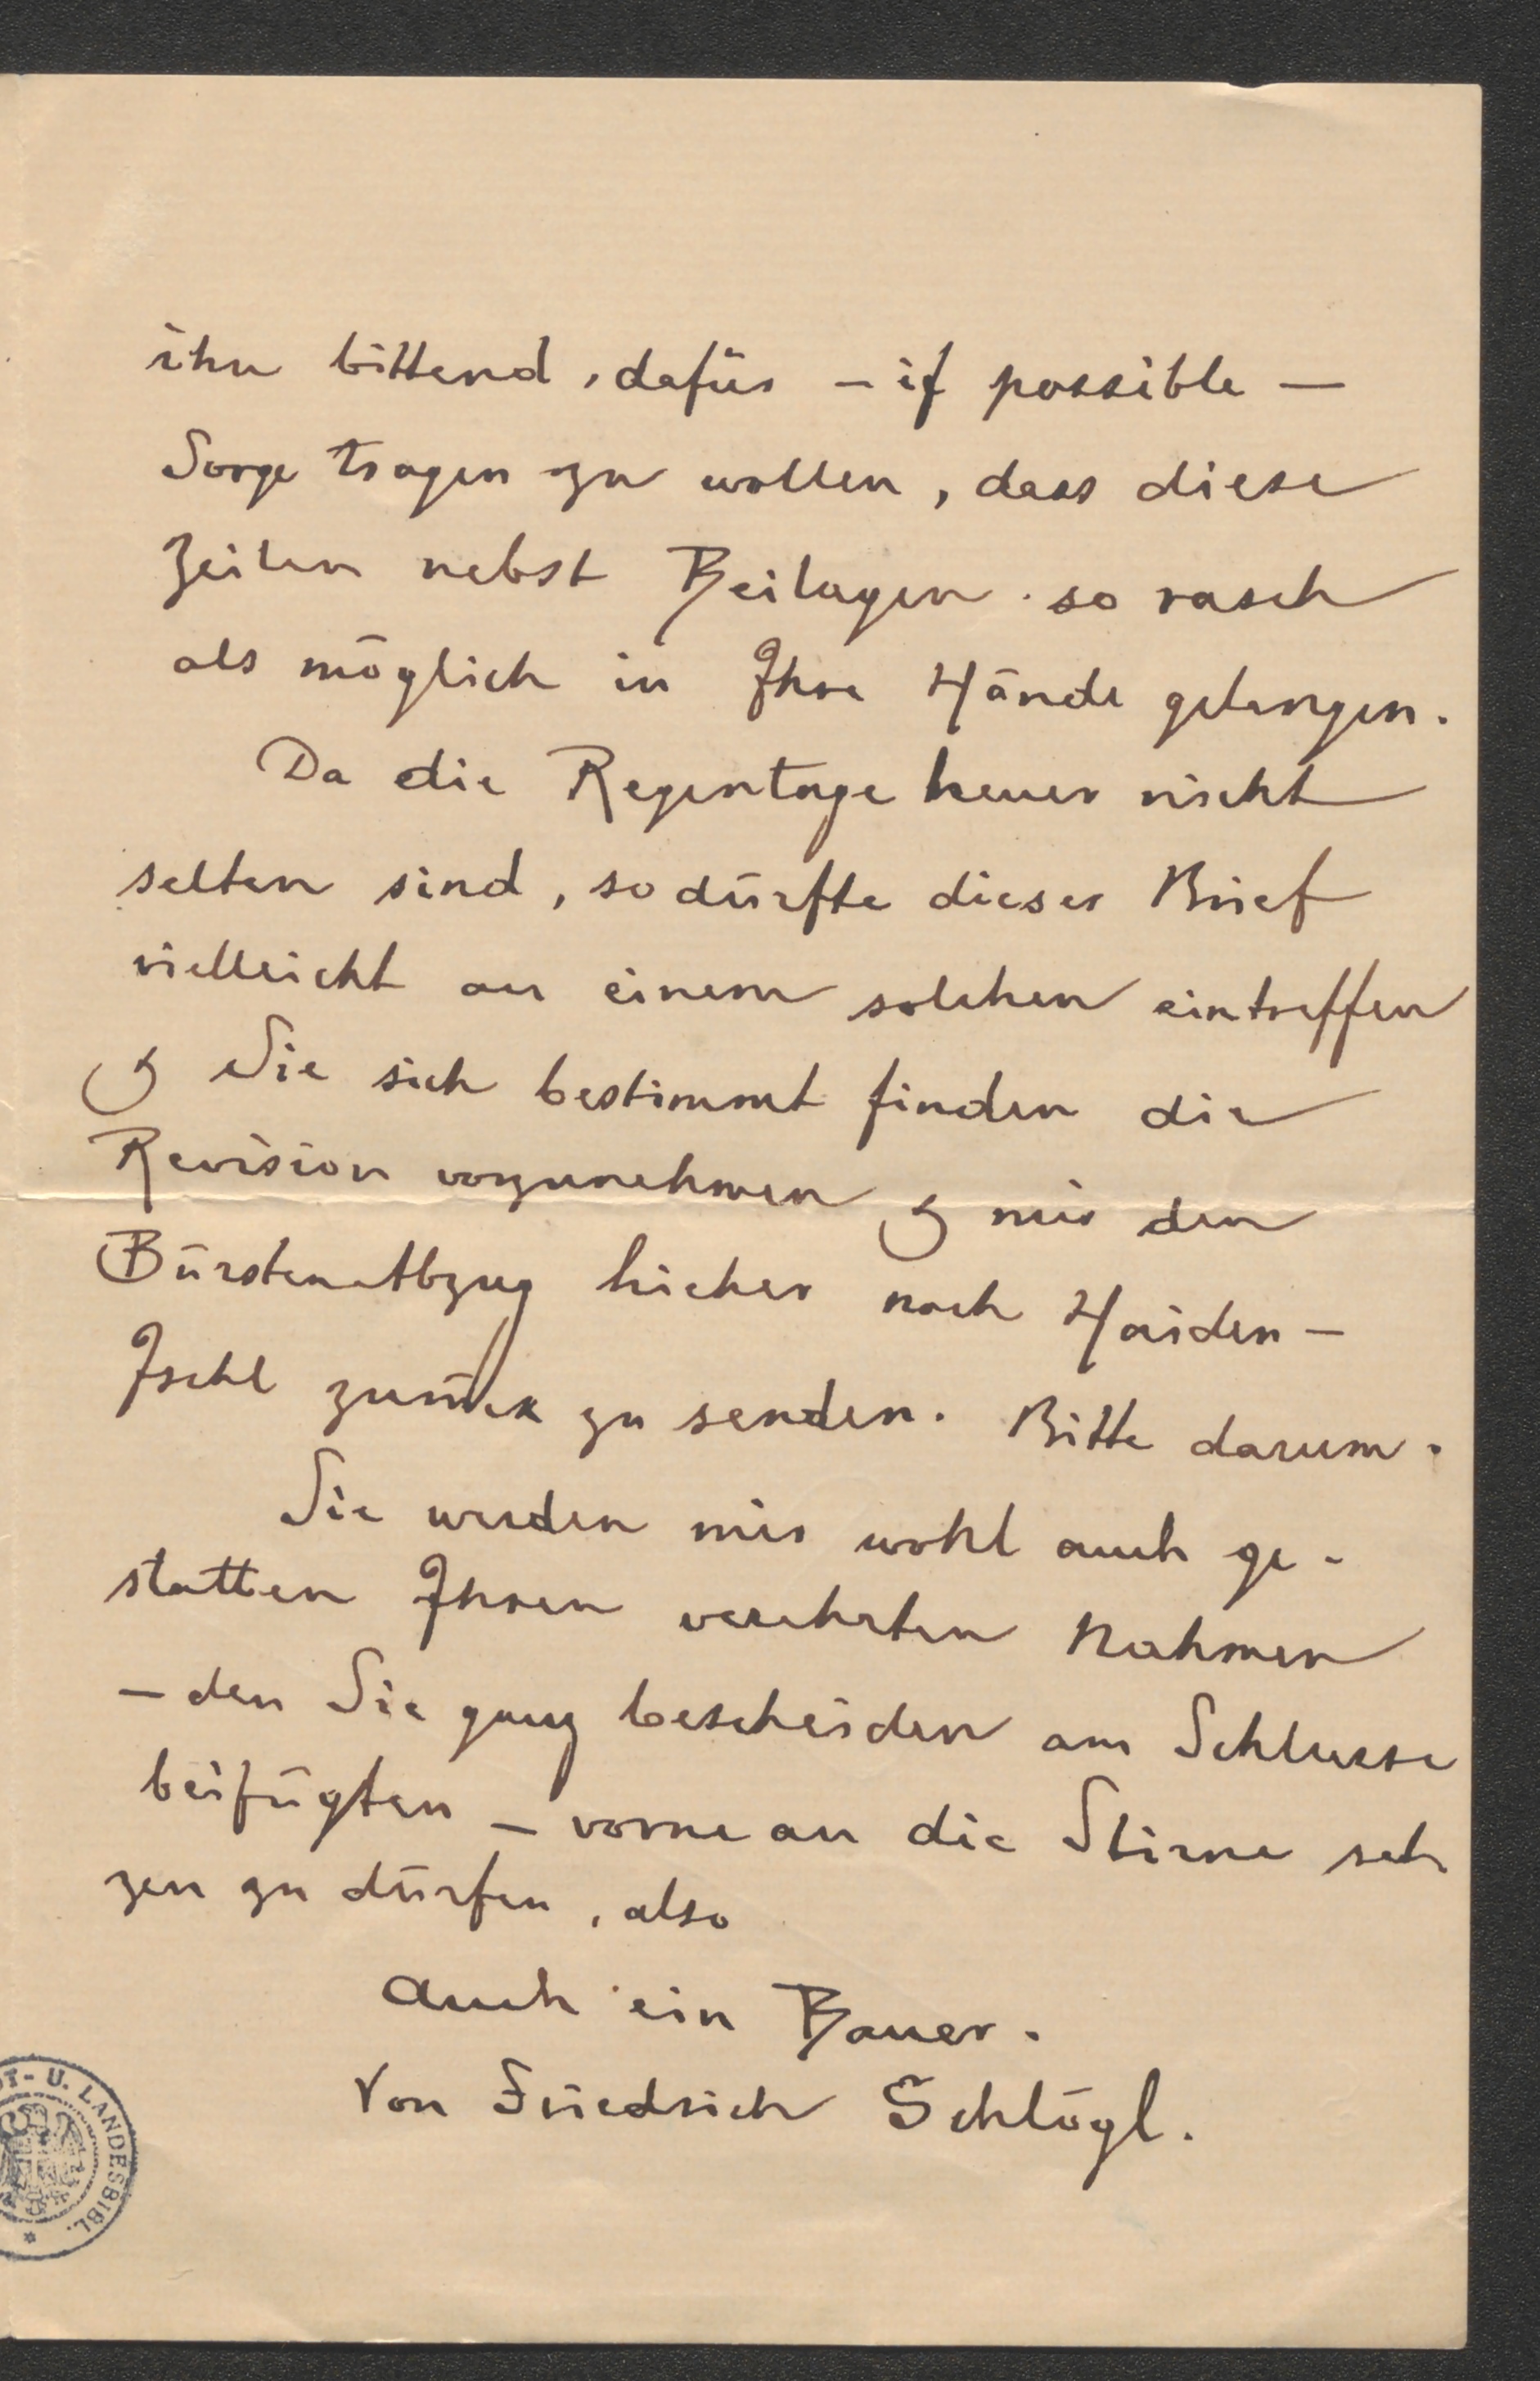 ihn bittend, dafür – if possible –
Sorge tragen zu wollen, dass diese
Zeilen nebst Beilagen so rasch
als möglich in Ihre Hände gelangen.
Da die Regentage heuer nicht
selten sind, so dürfte dieser Brief
vielleicht an einem solchen eintreffen
& Sie sich bestimmt finden die
Revision vorzunehmen & mir den
Bürstenabzug hieher nach Haiden-
Ischl zurück zu senden. Bitte darum.
Sie werden mir wohl auch ge-
statten Ihren verehrten Nahmen
– den Sie ganz bescheiden am Schlusse
beifügten – vorne an die Stirne set
zen zu dürfen, also
Auch ein Bauer.
Von Friedrich Schlögl.
DT- U. LANDESBIBL. *